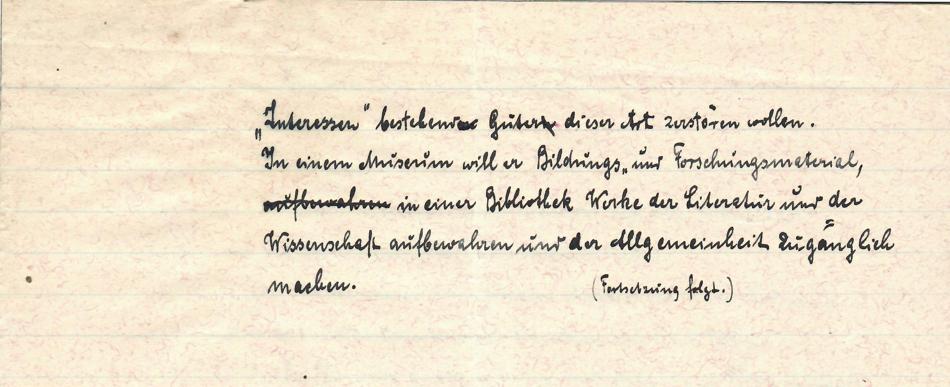 „Interessen" bestehende Güter dieser Art zerstören wollen.
In einem Museum will er Bildungs- und Forschungsmaterial,
aufbewahren in einer Bibliothek Werke der Literatur und der
Wissenschaft aufbewahren und der Allgemeinheit zugänglich
machen.
(Fortsetzung folgt.)